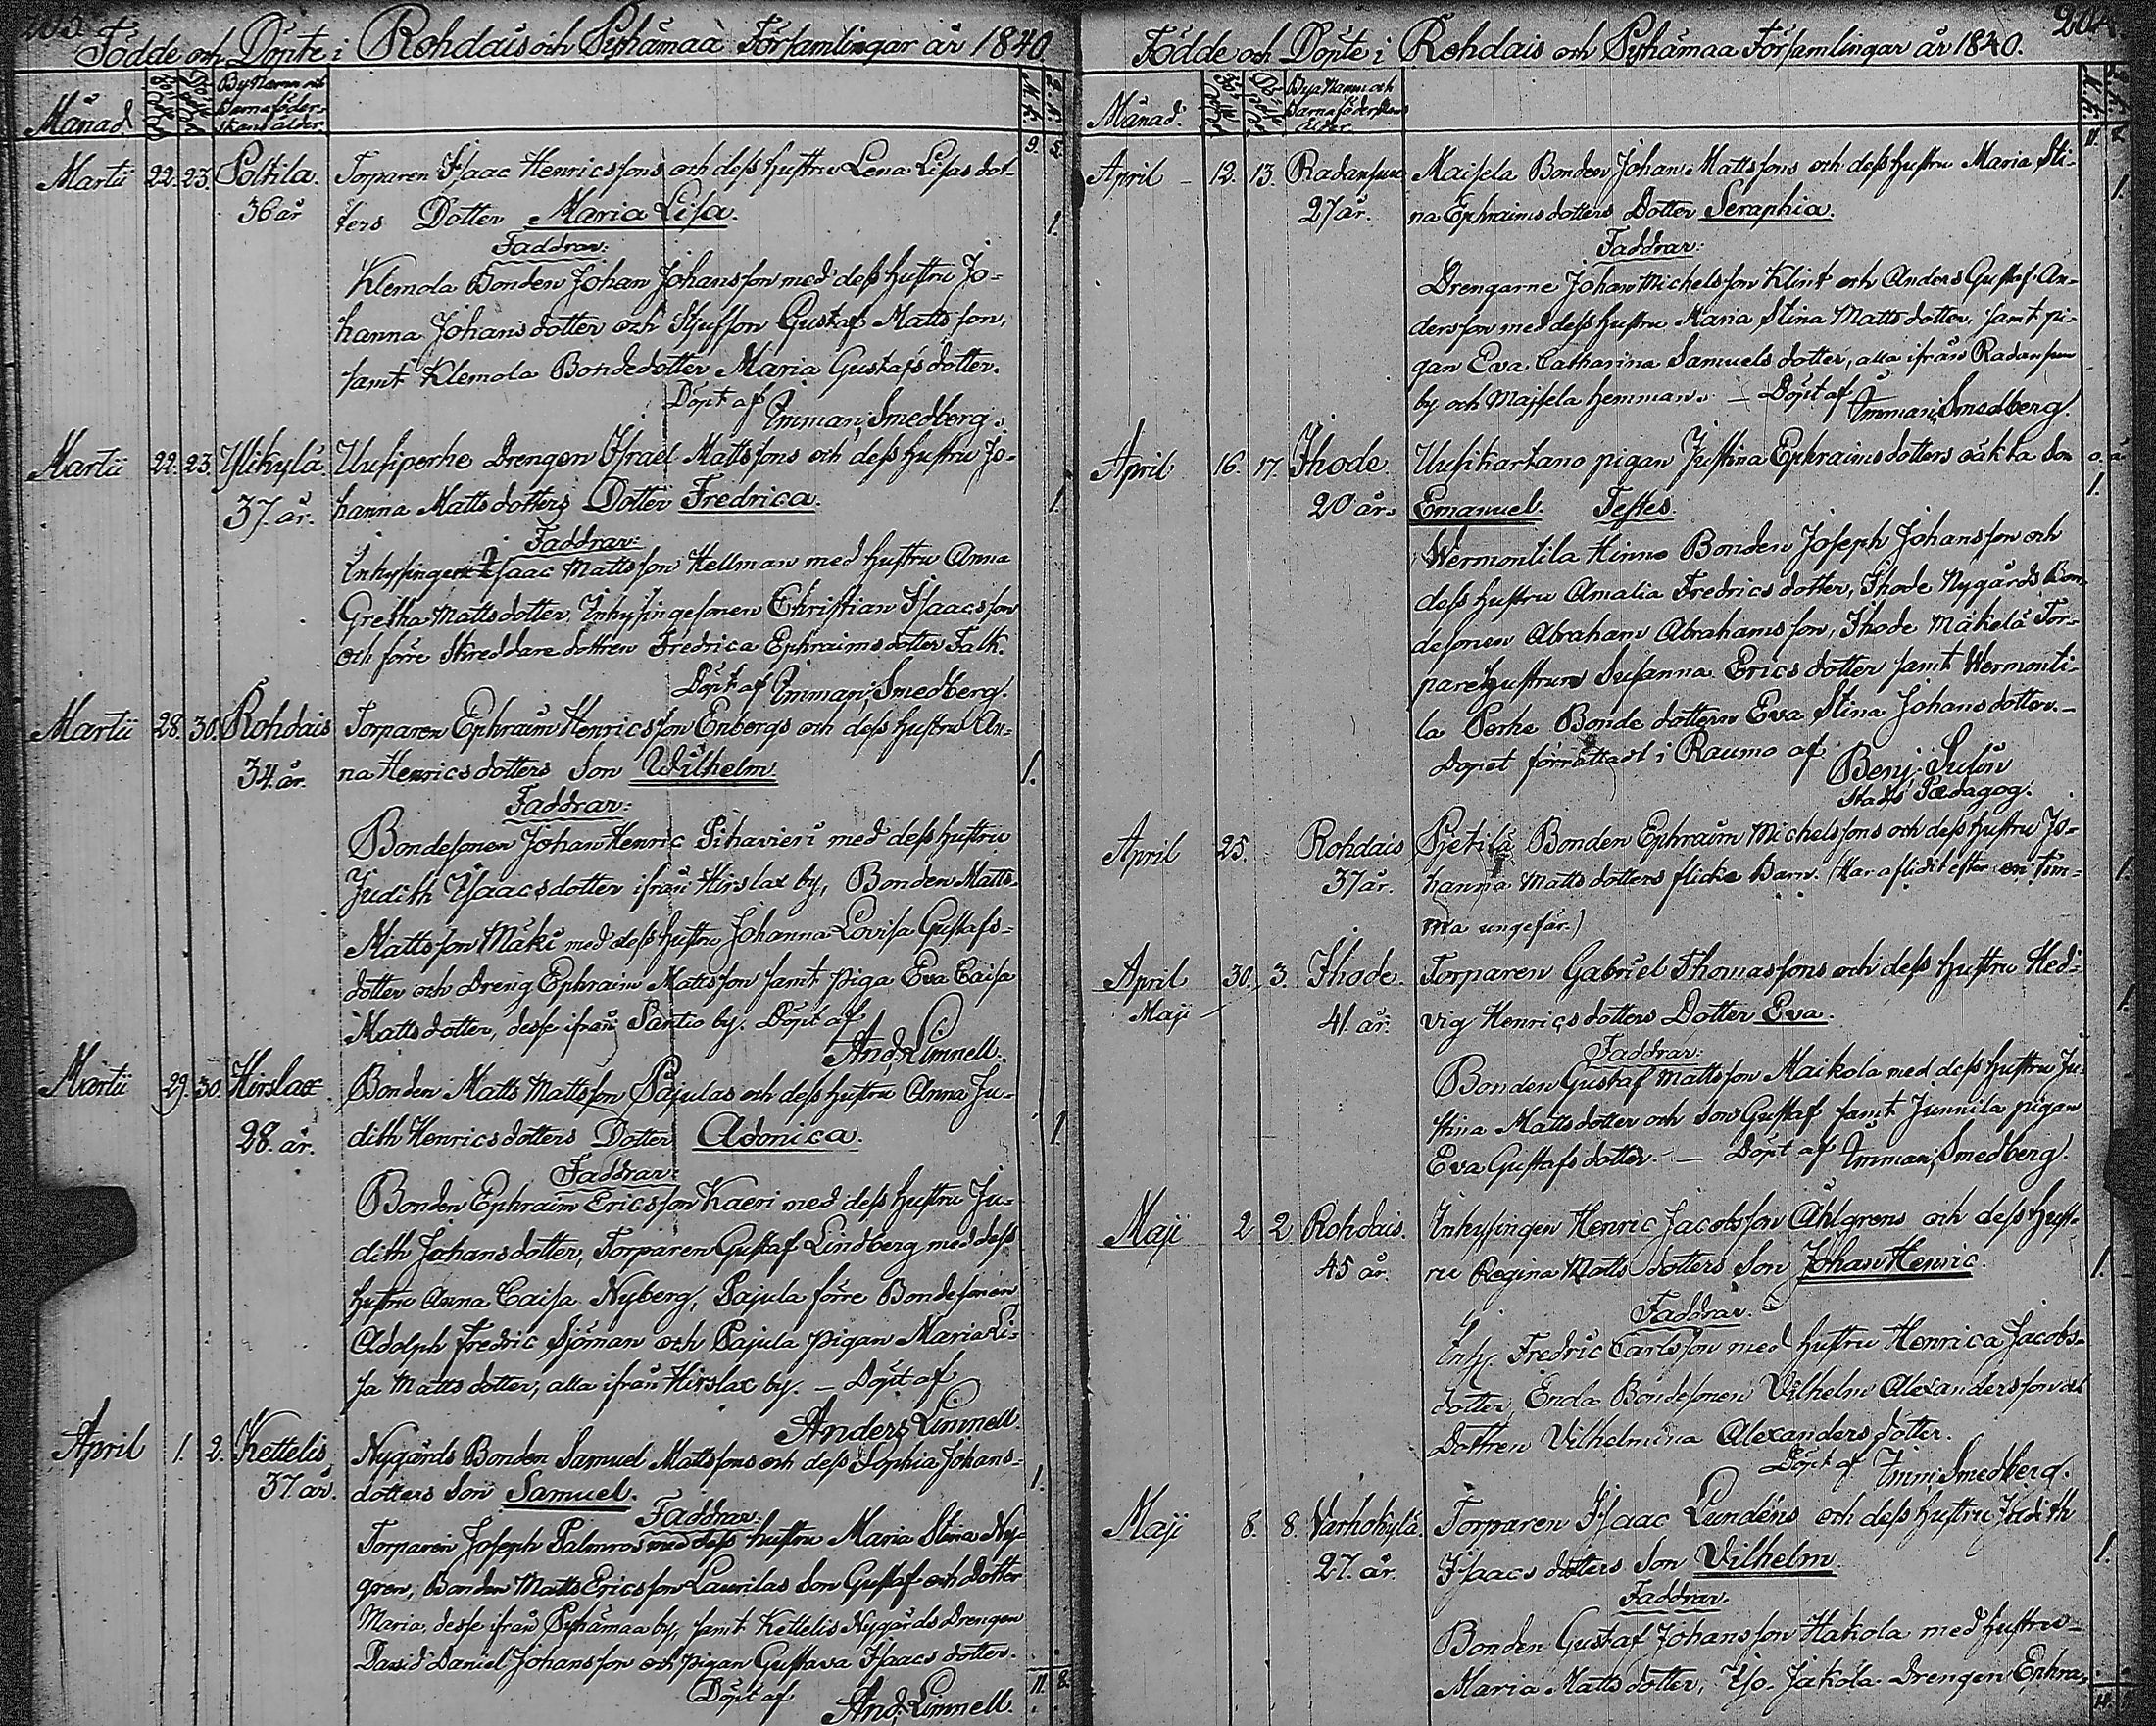 203
Födde och Döpte i Rohdais och Pyhämaa Församlingar år 1840.
Månad
By Namn och
Barnaföder-
skans ålder.
M.K. Q.K.
9. 5.
Martii 22. 23. Poltila. Torparen Isaac Henricssons och dess hustru Lena Lisas dot-
36 år ters Dotter Maria Lisa. 1.
Faddrar:
Klemola Bonden Johan Johansson med dess hustru Jo-
hanna Johansdotter och Styfson Gustaf Mattsson,
samt Klemola Bondedotter Maria Gustafsdotter.
Döpt af Imman; Smedberg.
Martii 22. 23. Ylikylä. Uusiperhe Drengen Israel Mattssons och dess hustru Jo-
37. år. hanna Mattsdotters Dotter Fredrica. 1.
Faddrar:
Inhysingen Isaac Mattsson Hellman med hustru Anna
Gretha Mattsdotter, Inhysingesonen Christian Isaacsson
och förre Skreddare dottren Fredrica Ephraimsdotter Falk.
Döpt af Imman; Smedberg.
Martii 28. 30. Rohdais Torparen Ephraim Henricsson Enbergs och dess hustru An-
34. år. na Henricsdotters Son Wilhelm 1.
Faddrar:
Bondesonen Johan Henric Pihavieri med dess hustru
Judith Isaacsdotter ifrån Hirslax by, Bonden Matts
Mattsson Mäki med dess hustru Johanna Lovisa Gustafs-
dotter och Dreng Ephraim Mattsson samt piga Eva Caisa
Mattsdotter, desse ifrån Santio by. Döpt af
And; Limnell.
Martii 29. 30. Hirslax. Bonden Matts Mattsson Pajulas och dess hustru Anna Ju-
28. år. dith Henricsdotters Dotter Adonica. 1.
Faddrar:
Bonden Ephraim Ericsson Kaeri med dess hustru Ju-
dith Johansdotter, Torparen Gustaf Lindberg med dess
hustru Anna Caisa Nyberg, Pajula förre Bondesonen
Adolph Fredric Sjöman och Pajula pigan Maria Li-
sa Mattsdotter, alla ifrån Hirslax by. – Döpt af
Anders Limnell.
April 1. 2. Kettelis Nygårds Bonden Samuel Mattssons och dess Sophia Johans-
37. år. dotters Son Samuel. 1.
Faddrar:
Torparen Joseph Palmros med dess hustru Maria Stina Ny-
gren, Bonden Matts Ericsson Laurilas Son Gustaf och dotter
Maria, desse ifrån Pyhämaa by, samt Kettelis Nygårds Drengen
David Daniel Johansson och pigan Gustava Isaacsdotter.
11. 8.
Döpt af And; Limnell.
204.
Födde och Döpte i Rohdais och Pyhämaa Församlingar år 1840.
Månad.
Bya Namn och
Barnaföderskans
ålder.
M.K. Q.K.
11.
April 12. 13. Radansuu Maisela Bonden Johan Mattssons och dess hustru Maria Sti-
27 år. na Ephraimsdotters Dotter Seraphia. 1.
Faddrar:
Drengarne Johan Michelsson Klint och Anders Gustaf An-
dersson med dess hustru Maria Stina Mattsdotter, samt pi-
gan Eva Catharina Samuelsdotter, alla ifrån Radansuu
by och Maisela hemman. – Döpt af Imman; Smedberg.
April 16. 17. Ihode. Uusikartano pigan Justina Ephraimsdotters oäkta Son o.ä.
20 år. Emanuel. Testes. 1.
Wermontila Hinno Bonden Joseph Johansson och
dess hustru Amalia Fredricsdotter, Ihode Nygårds Bon-
desonen Abraham Abrahamsson, Ihode Mäkelä Tor-
parehustrun Susanna Ericsdotter samt Wermonti-
la Perhe Bonde dottern Eva Stina Johansdotter. –
Dopet förrättadt i Raumo af Benj. Sulin
Stads Pædagog.
April 25. Rohdais Pjetilä Bonden Ephraim Michelssons och dess hustru Jo-
37 år. hanna Mattsdotters flicke Barn. (Har aflidit efter en tim- 1.
ma ungefär.)
April 30. 3. Ihode. Torparen Gabriel Thomassons och dess hustru Hed-
Maji 41. år. vig Henricsdotters Dotter Eva. 1.
Faddrar:
Bonden Gustaf Mattsson Maikola med dess hustru Ju-
stina Mattsdotter och Son Gustaf samt Junnila pigan
Eva Gustafsdotter. – Döpt af Imman; Smedberg.
Maji 2 2 Rohdais. Inhysingen Henric Jacobsson Ahlgrens och dess hust-
45 år. ru Regina Mattsdotters Son Johan Henric. 1.
Faddrar.
Inh. Fredric Carlsson med hustru Henrica Jacobs-
dotter, Erola Bondesonen Vilhelm Alexandersson och
Dottren Vilhelmina Alexandersdotter.
Döpt af Imm; Smedberg.
Maji 8. 8. Varhokylä. Torparen Isaac Lundéns och dess hustru Judith
27. år. Isaacsdotters Son Vilhelm. 1.
Faddrar.
Bonden Gustaf Johansson Hakola med hustru
Maria Mattsdotter, Yso-Jakola Drengen Ephra-